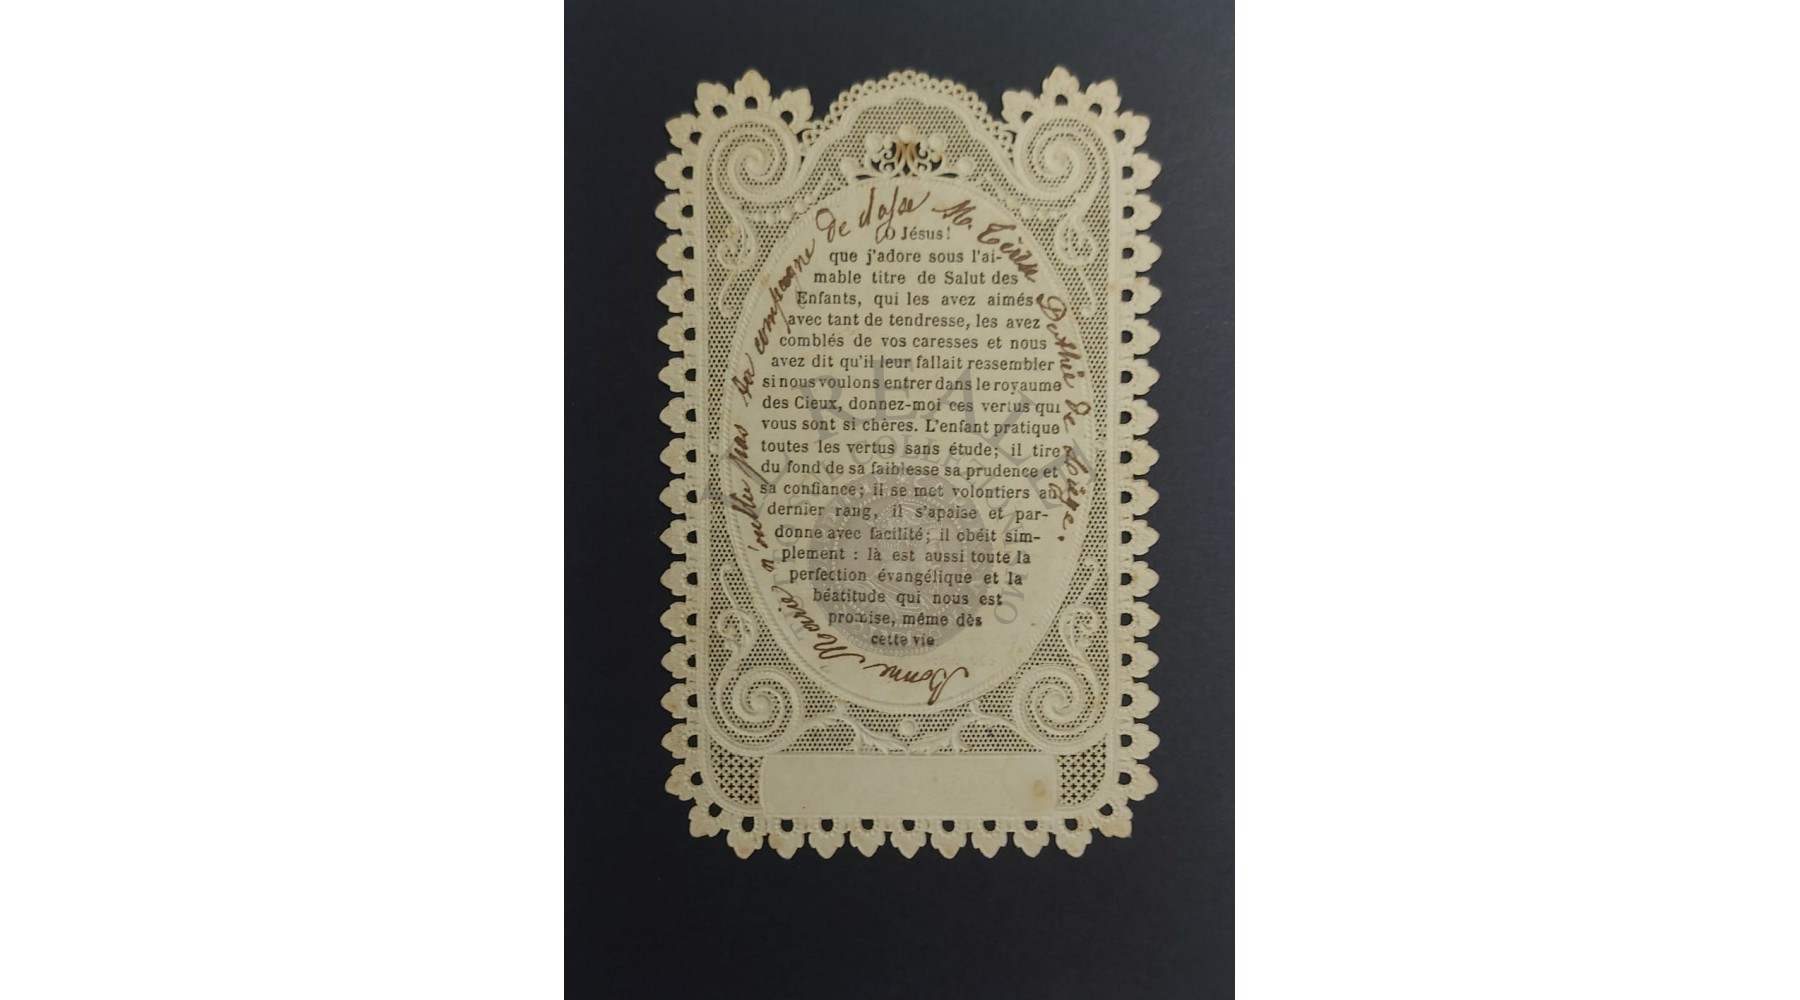 O Jésus!
que j'adore sous l'ai-
mable titre de Salut des
Enfants, qui les avez aimés
avec tant de tendresse, les avez
comblés de vos caresses et nous
avez dit qu'il leur fallait ressembler
si nous voulons entrer dans le royaume
des Cieux, donnez-moi ces vertus qui
vous sont si chères. L'enfant pratique
toutes les vertus sans étude; il tire
du fond de sa faiblesse sa prudence et
sa confiance; il se met volontiers au
dernier rang, il s'apaise et par-
donne avec facilité; il obéit sim-
plement : là est aussi toute la
perfection évangélique et la
béatitude qui nous est
promise, même dès
cette vie
Bonne Marie n'oublie pas ta compagne de classe M. de Liège.